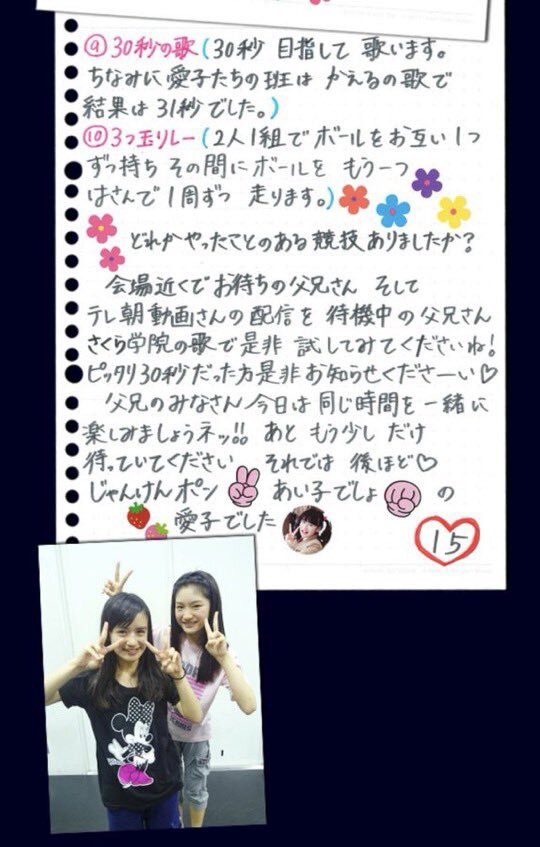 ⑨30秒の歌(30秒 目指して 歌います。
ちなみに 愛子たちの班は かえるの歌で
結果は 31秒でした。)
⑩3つ玉リレー(2人1組で ボールをお互い1つ
ずつ持ち その間にボールを もう一つ
はさんで 1周ずつ 走ります。)
どれかやったことのある競技ありましたか?
会場近くでお待ちの父兄さん そして
テレ朝動画さんの配信を 待機中の父兄さん
さくら学院の歌で是非 試してみてくださいね!
ピッタリ30秒だった方是非お知らせくださーい♡
父兄のみなさん今日は同じ時間を一緒に
楽しみましょうネッ!! あと もう少し だけ
待っていてください それでは 後ほど♡
じゃんけんポン あい子でしょ の
愛子でした
15